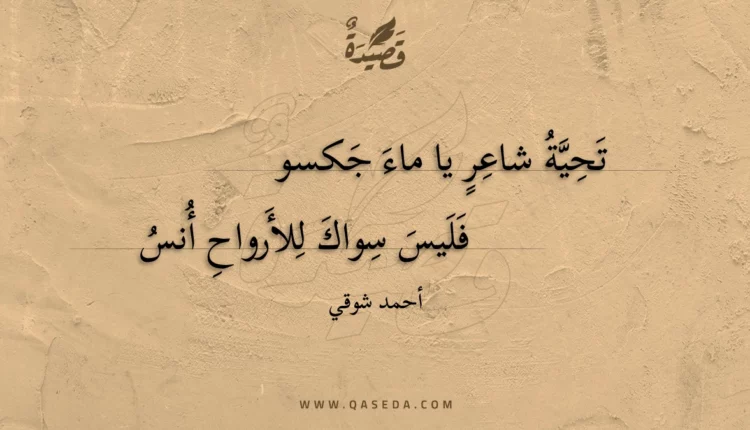 قَصِيْدَةٌ
تَحِيَّةُ شاعِرٍ يا ماءَ جَكسو
فَلَيسَ سِواكَ لِلأَرواحِ أُنسُ
أحمد شوقي
WWW.QASEDA.COM